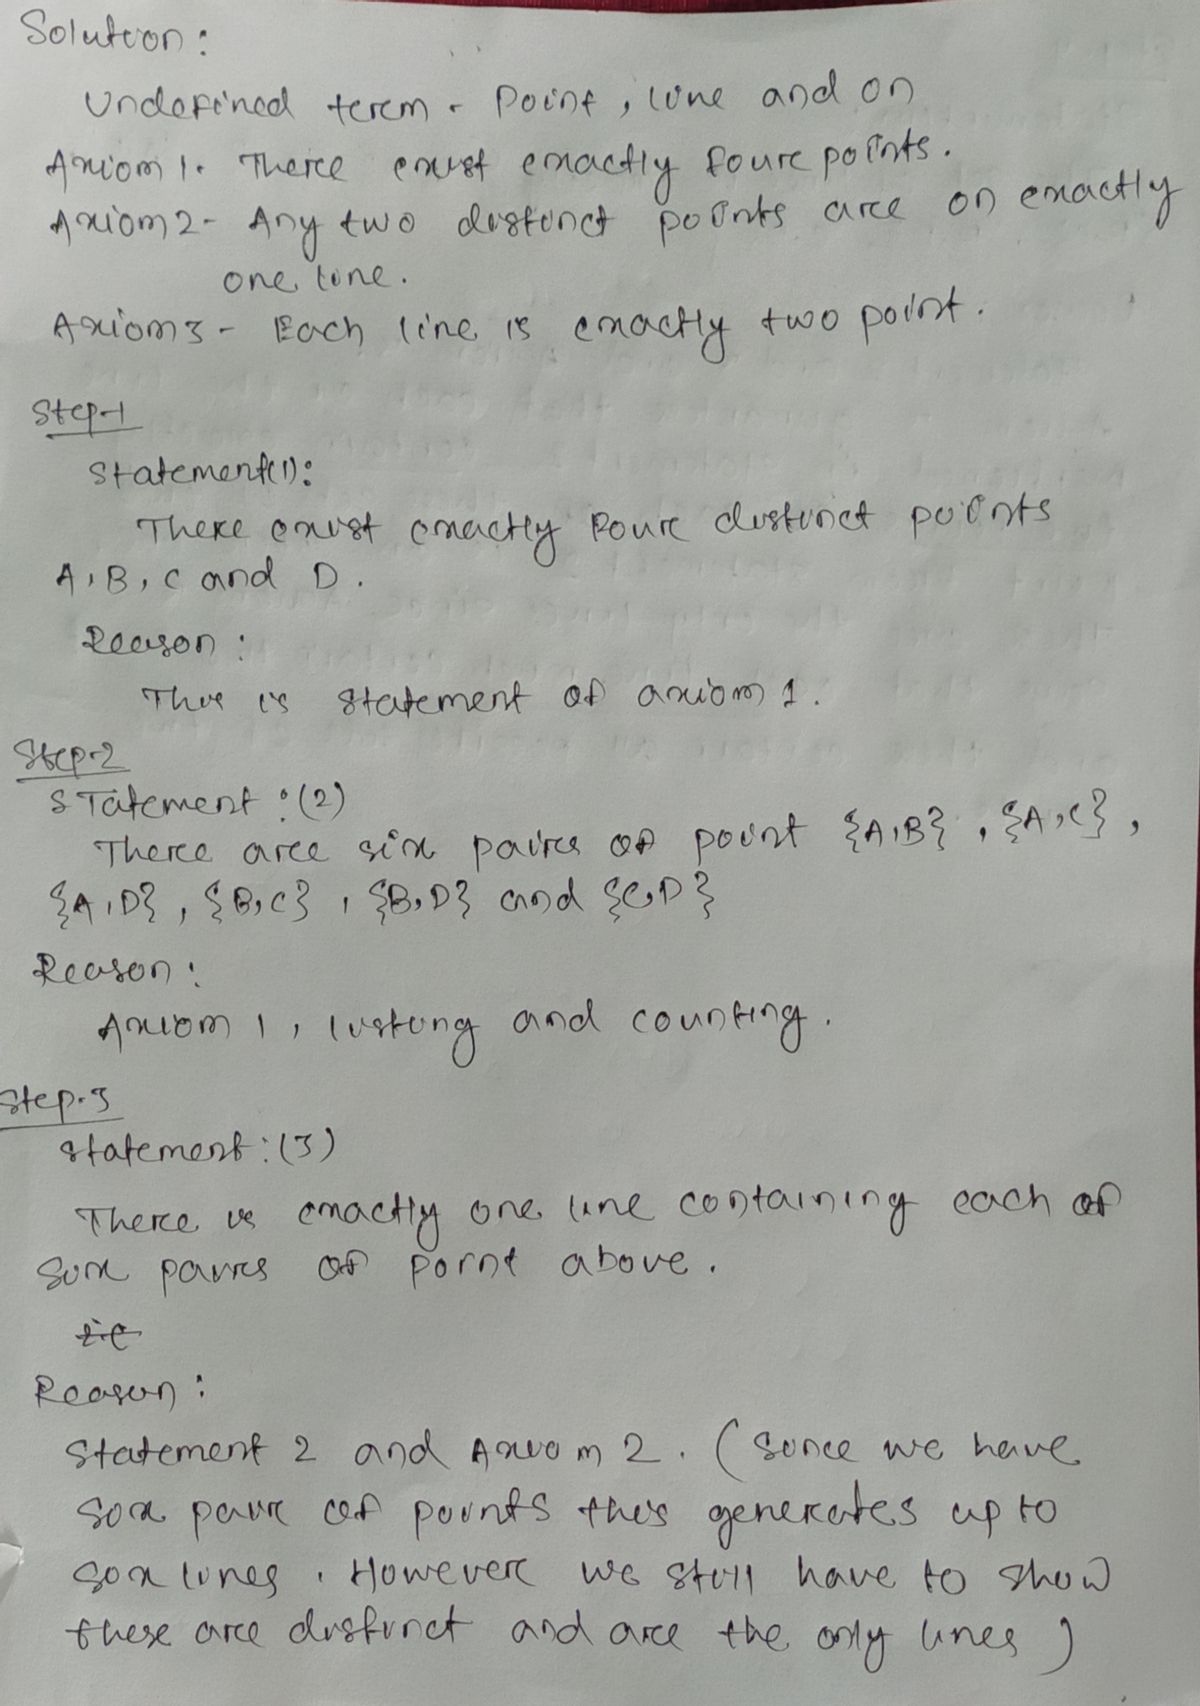 Solution:
Undefined term - Point, line and on
Axiom 1. There exist exactly four points.
Axiom 2 - Any two distinct points are on exactly
one line.
Axiom 3 - Each line is exactly two point.
Step-1
Statement(1):
There exist exactly four distinct points
A, B, C and D.
Reason:
This is statement of axiom 1.
Step-2
STatement:(2)
There are six pairs of point {A,B}, {A,C},
{A,D}, {B,C}, {B,D} and {C,D}
Reason:
Axiom 1, listing and counting.
Step-3
Statement:(3)
There is exactly one line containing each of
six pairs of point above.
Reason:
Statement 2 and Axiom 2. (Since we have
six pair of points this generates up to
six lines. However we still have to show
these are distinct and are the only lines)